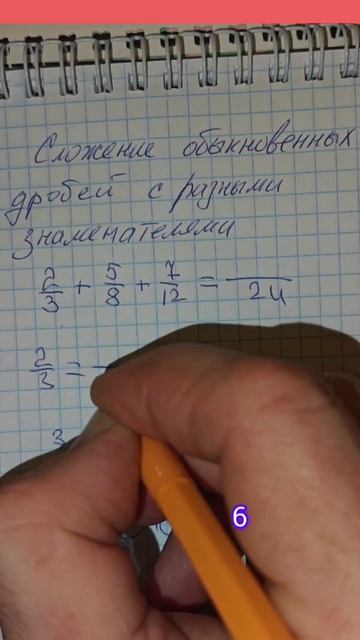 Сложение обыкновенных
дробей с разными
знаменателеми
2/3 + 5/8 + 7/12 = —/24
2/3 = —
3
6